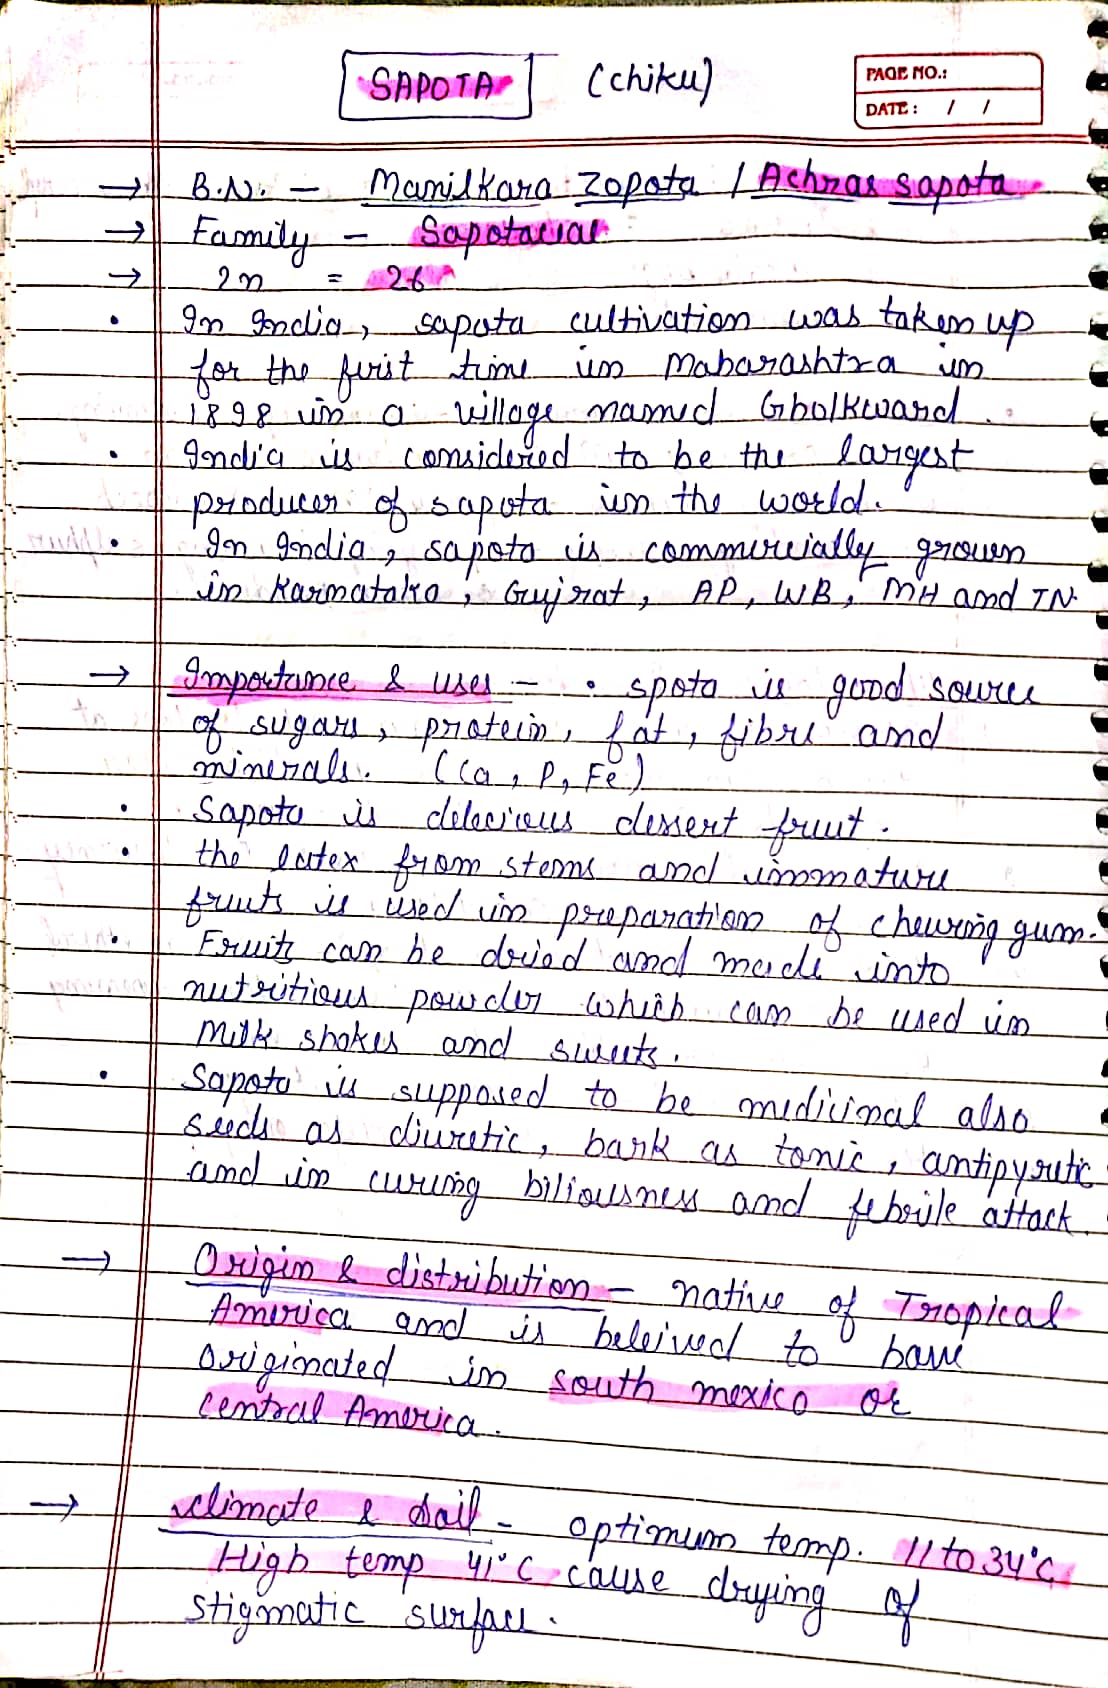 SAPOTA (chiku)
PAGE NO.:
DATE: / /
→ B.N. - Manilkara Zopota / Achras sapota
→ Family - Sapotaciae
→ 2n = 26
• In India, sapota cultivation was taken up
for the first time in Maharashtra in
1898 in a village named Gholkward.
• India is considered to be the largest
producer of sapota in the world.
• In India, sapota is commercially grown
in Karnataka, Gujrat, AP, WB, MH and TN.
→ Importance & uses - • spota is good source
of sugars, protein, fat, fibre and
minerals. (Ca, P, Fe)
• Sapota is delecious dessert fruit.
• the latex from stems and immature
fruits is used in preparation of chewing gum.
• Fruits can be dried and made into
nutritious powder which can be used in
Milk shakes and sweets.
• Sapota is supposed to be medicinal also
seeds as diuretic, bark as tonic, antipyretic
and in curing biliousness and febrile attack.
→ Origin & distribution - native of Tropical
America and is beleived to have
originated in south mexico or
central America.
→ climate & soil - optimum temp. 11 to 34°C
High temp 41°C cause drying of
stigmatic surface.